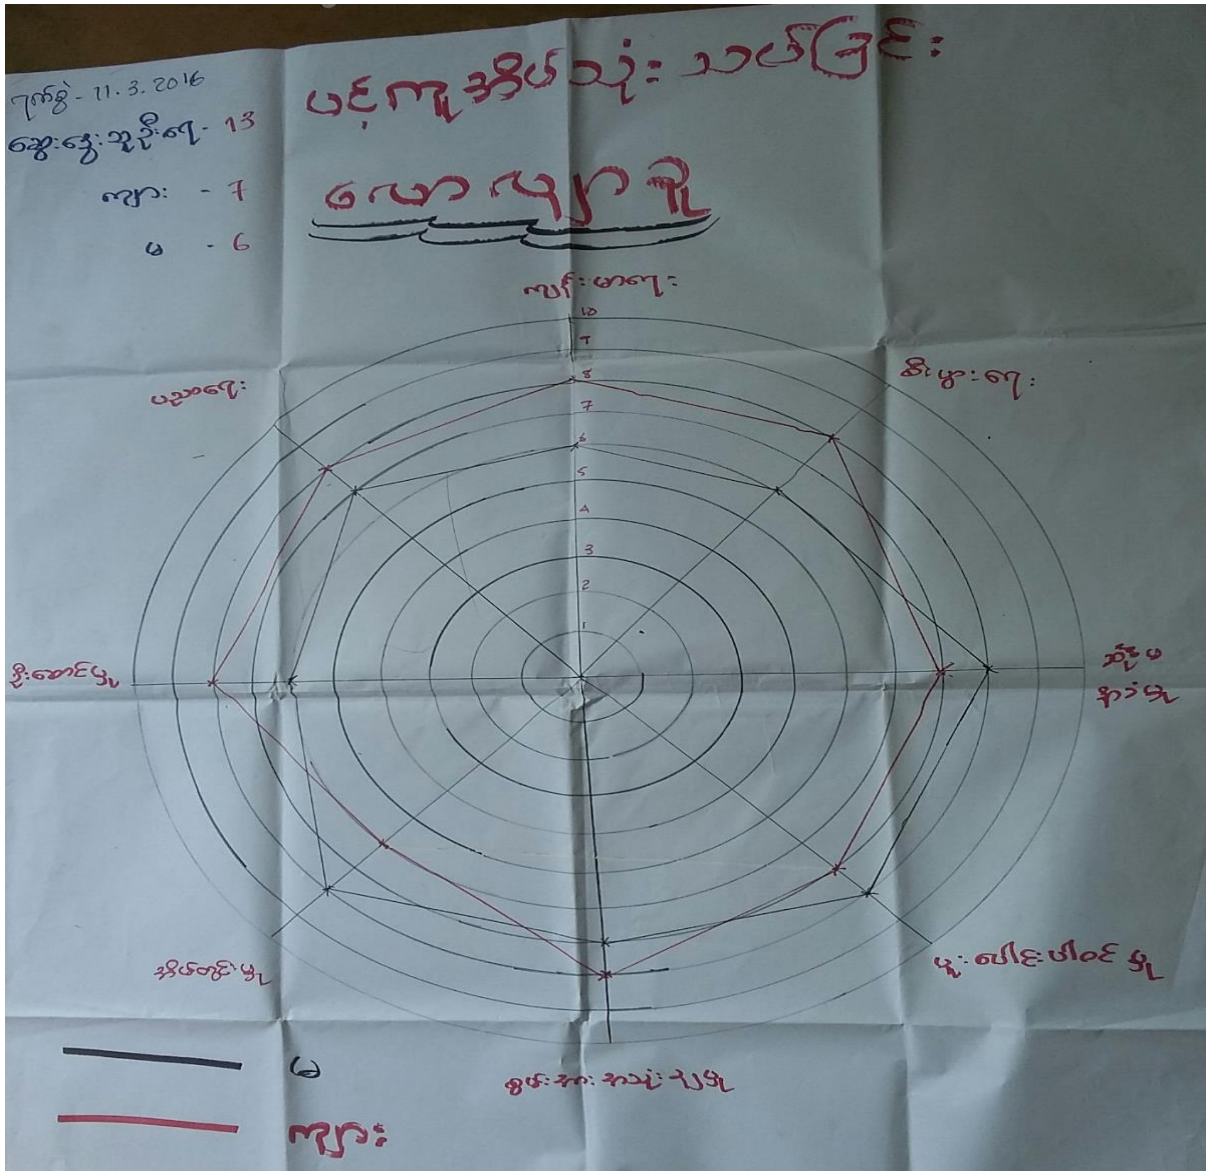 ရက်စွဲ - 11.3.2016
ဆွေးနွေးသူဦးရေ - 13
ကျား - 7
မ - 6
ပင့်ကူအိမ်သုံးသပ်ခြင်း
ကျန်းမာရေး
စီးပွားရေး
ပညာရေး
10
9
8
7
6
5
4
3
2
1
ဦးဆောင်မှု
ပူးပေါင်းပါဝင်မှု
စွမ်းအားအသုံးချမှု
မ
ကျား